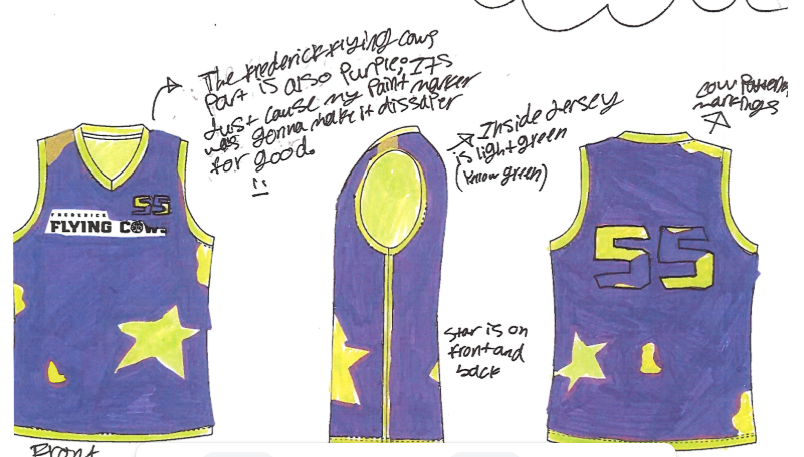 The Frederick Flying Cows
Part is also Purple; Its
Just cause my Paint marker
was gonna make it dissaper
for good.
Cow Pattern
markings
Inside Jersey
is light green
(Yellow green)
55
FREDERICK
FLYING COWS
55
Star is on
Front and
back
Front